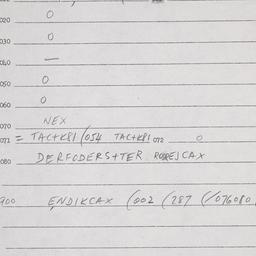 020 0
030 0
040 —
050 0
060 0
070 NEX
071 = TAC+K81 (054 TAC+K81 072 0
080 DERFODERS+TER CAX
900 ENDIKCAX (002 (287 (/076080